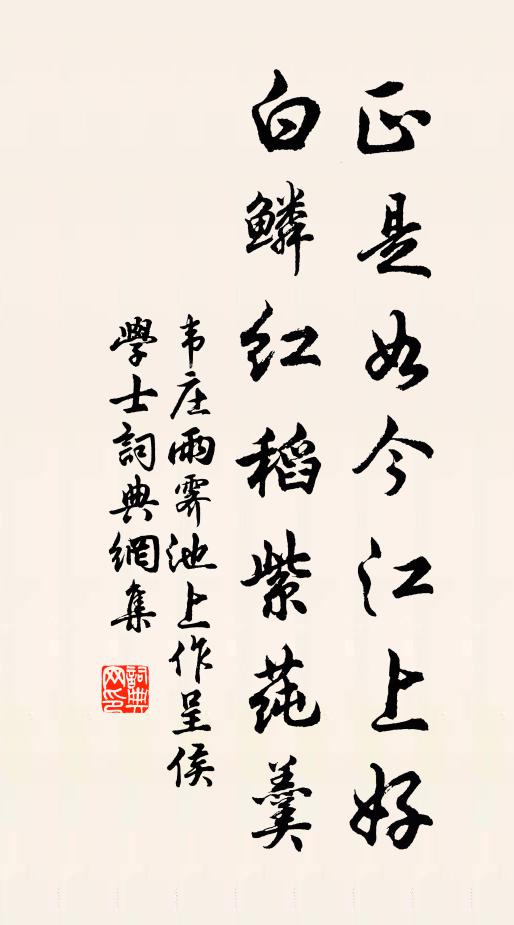 正是如今江上好
白鳞红稻紫莼羹
韦庄雨霁池上作呈侯
學士詞典網集
詞典
网印